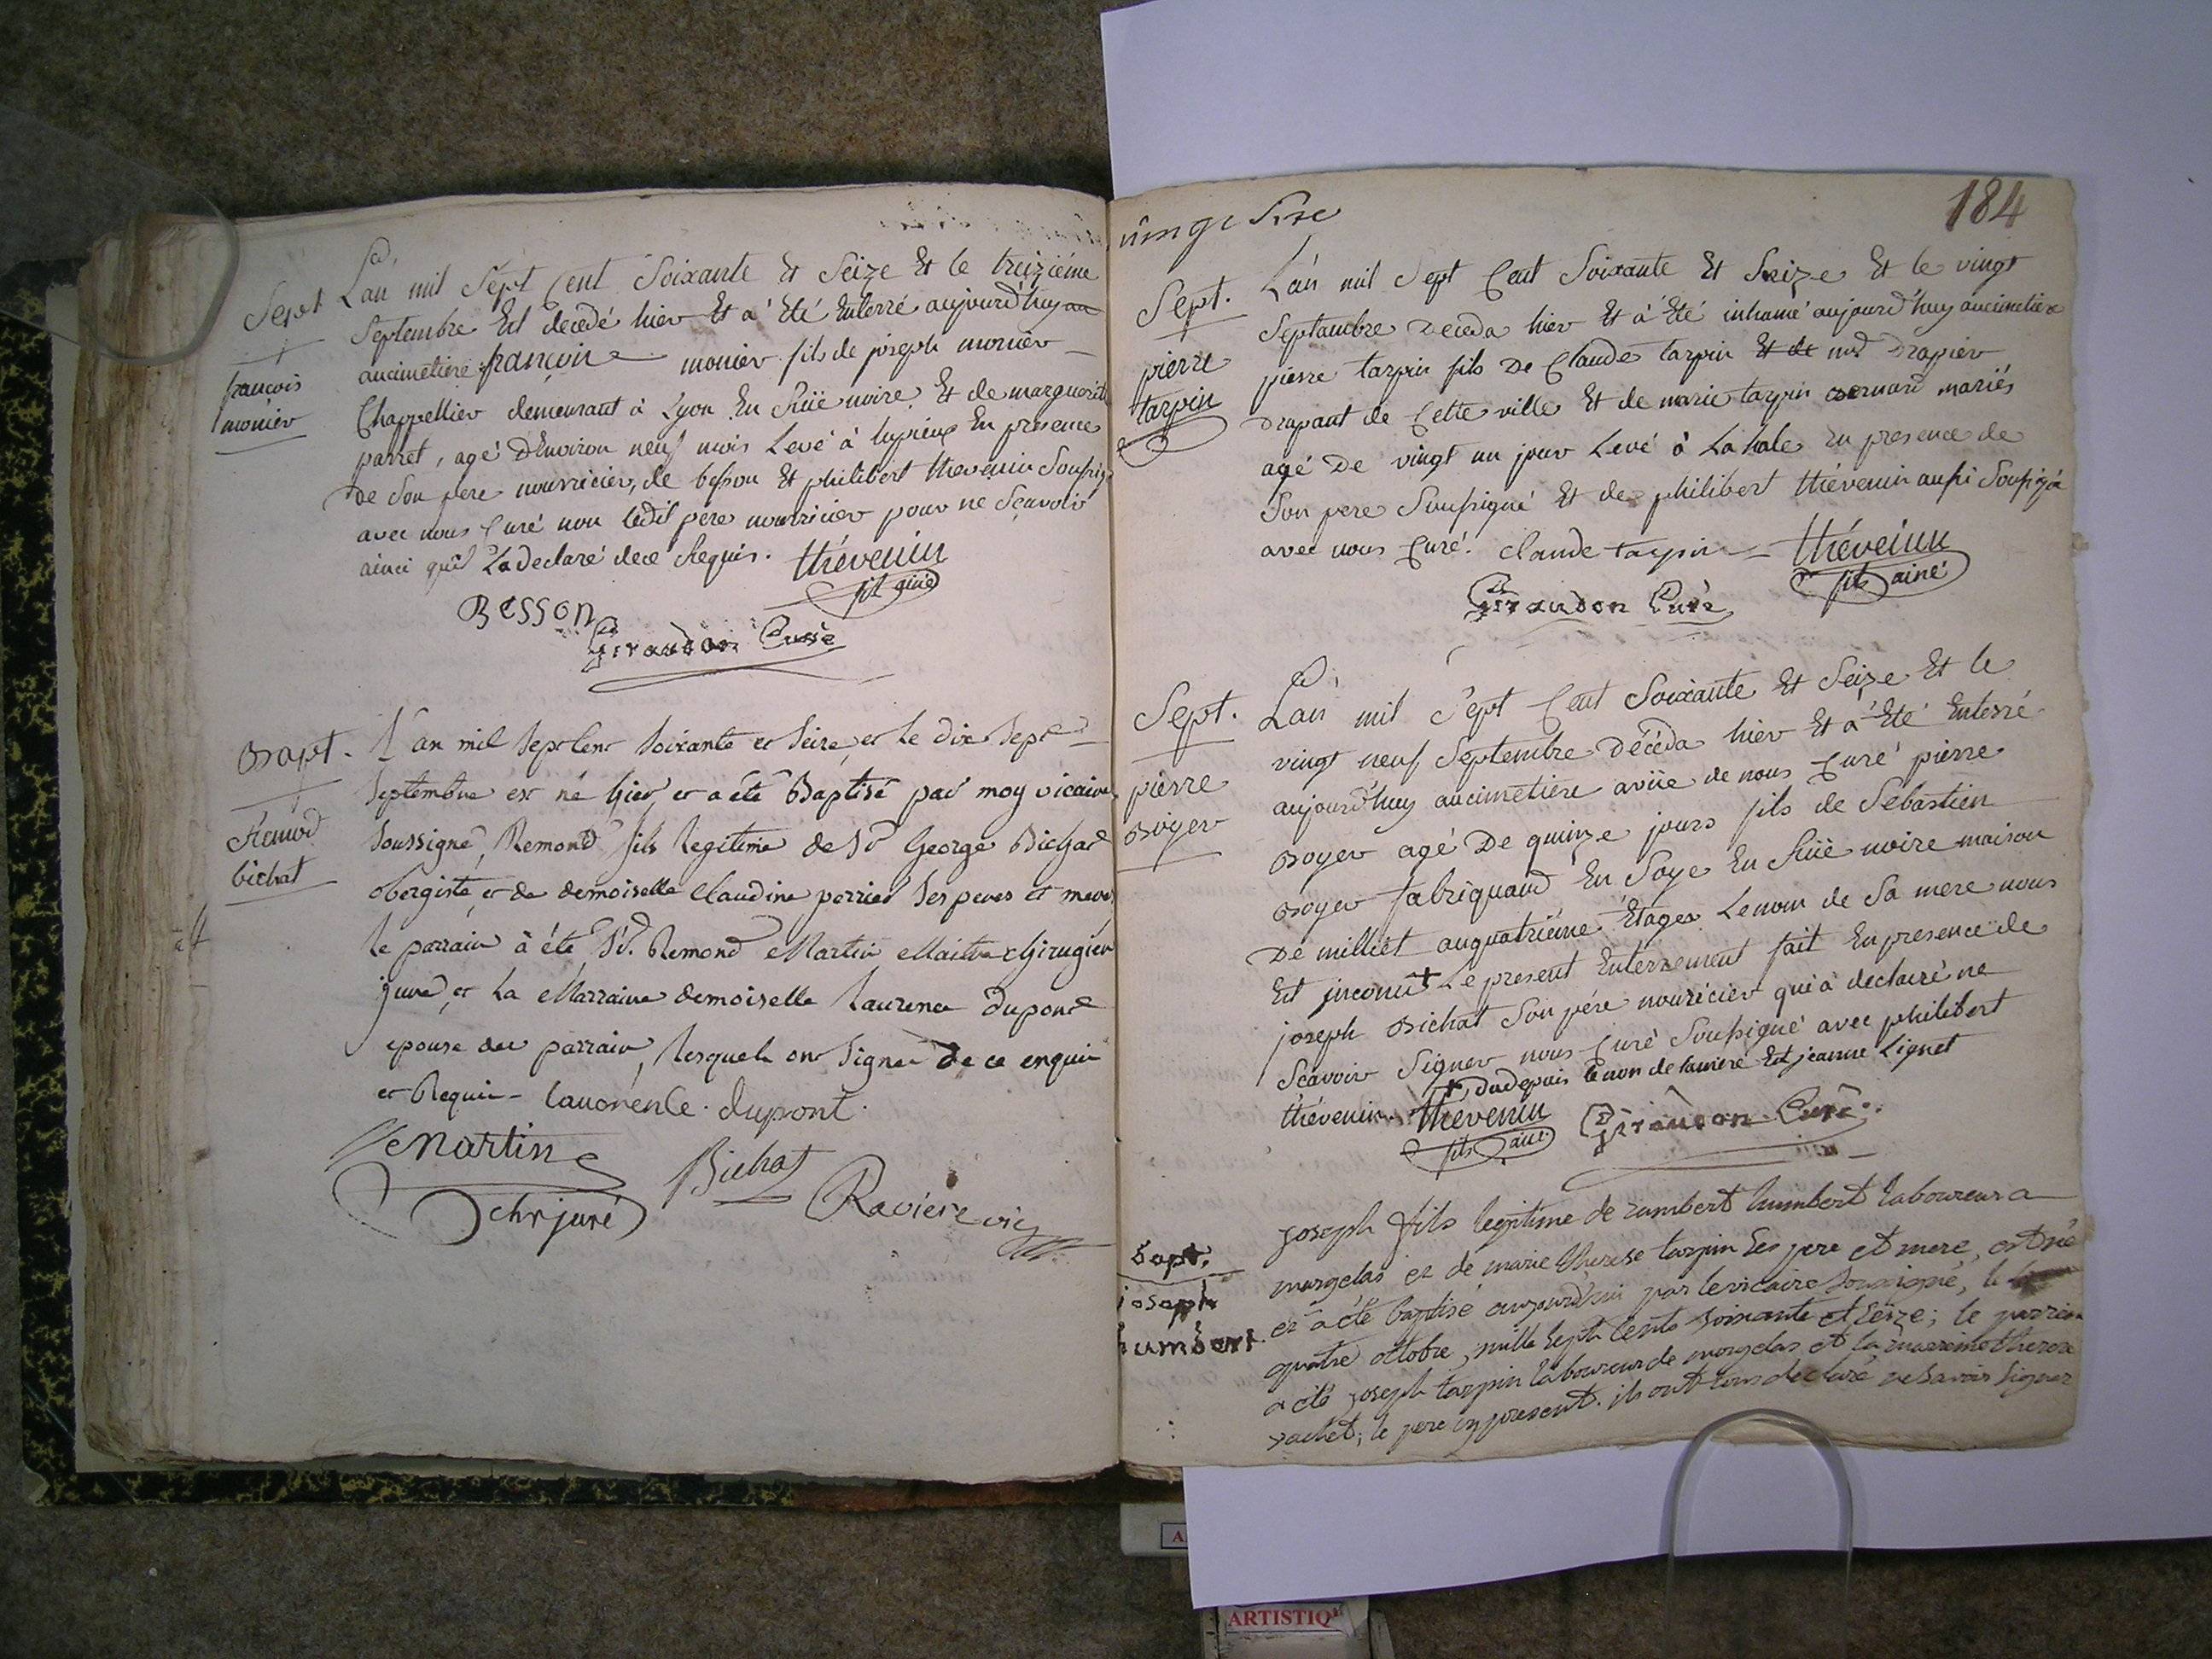 Sept
françois
monier
L'an mil Sept Cent Soixante Et Seize Et le treiziéme
Septembre Est decedé hier Et à Eté Enterré aujourd'huy au
aucimetiere françois monier fils de joseph monier
Chappellier demeurant à Lyon En Rüe noire Et de marguerit
parret, agé D'Environ neuf mois Levé à lupieux En presence
De Son pere nourricier, de besson Et philibert thevenin Soussig
avec nous Curé non ledit pere nourricier pour ne Sçavoir
ainci qu'il La declaré de ce Requis. thévenin
fils ainé
BESSON
Giraudon Curé
Bapt.
Rémod
bichat
L'an mil Sept Cent Soixante et Seize, et le dix Sept
Septembre est né hier et a été Baptisé par moy vicaire
Soussigné, Remond fils legitime de Sr George Bichat
obergiste, et de demoiselle Claudine perrier Ses peres et meres
le parrain à été Sr. Remond Martin Maitre Chirugien
juré, et La Marraine demoiselle Laurence Dupond
epouse du parrain, lesquels ont Signer de ce enquis
et Requis - lauorence dupont
Martin
chr juré
Bichat
Raviere vic
vingt Sixe
184
Sept.
pierre
tarpin
L'an mil Sept Cent Soixante Et Seize Et le vingt
Septambre Deceda hier Et à Eté inhumé aujourd'huy aucimetiere
pierre tarpin fils De Claude tarpin Et de md Drapier
Drapant de Cette ville Et de marie tarpin mariés
agé De vingt un jour Levé à La hale En presence de
Son pere Soussigné Et de philibert thévenin aussi Soussigné
avec nous Curé. claude tarpin thévenin
fils ainé
Giraudon Curé
Sept.
pierre
Boyer
L'an mil Sept Cent Soixante Et Seize Et le
vingt neuf Septembre Décéda hier Et à Eté Enterré
aujourd'huy aucimetiere avüe de nous Curé pierre
Boyer agé De quinze jours fils de Sebastien
Boyer fabriquand En Soye En Rüe noire maison
De milliet auquatriéme Etage. Le nom de Sa mere nous
Est jnconu + Le present Enterrement fait En presence de
joseph Bichat Son pére nouricier qui à declaré ne
Scavoir Signer nous Curé Soussigné avec philibert
thévenin. + dudepuis le nom de lamere Est jeanne Lignet
thévenin
fils ainé
Giraudon Curé.
bapt.
joseph
humbert
joseph fils legitime de rambert humbert laboureur a
morgelas et de marie therese tarpin Ses pere et mere, est né
et a été baptisé aujourd'hui par le vicaire Soussigné, le
quatre octobre, mille Sept Cents Soixante et Seize; le parrin
a été joseph tarpin laboureur de morgelas et la marrine therese
vachet; le pere cy present. ils ont tous declaré ne Savoir Signer
ARTISTIQ